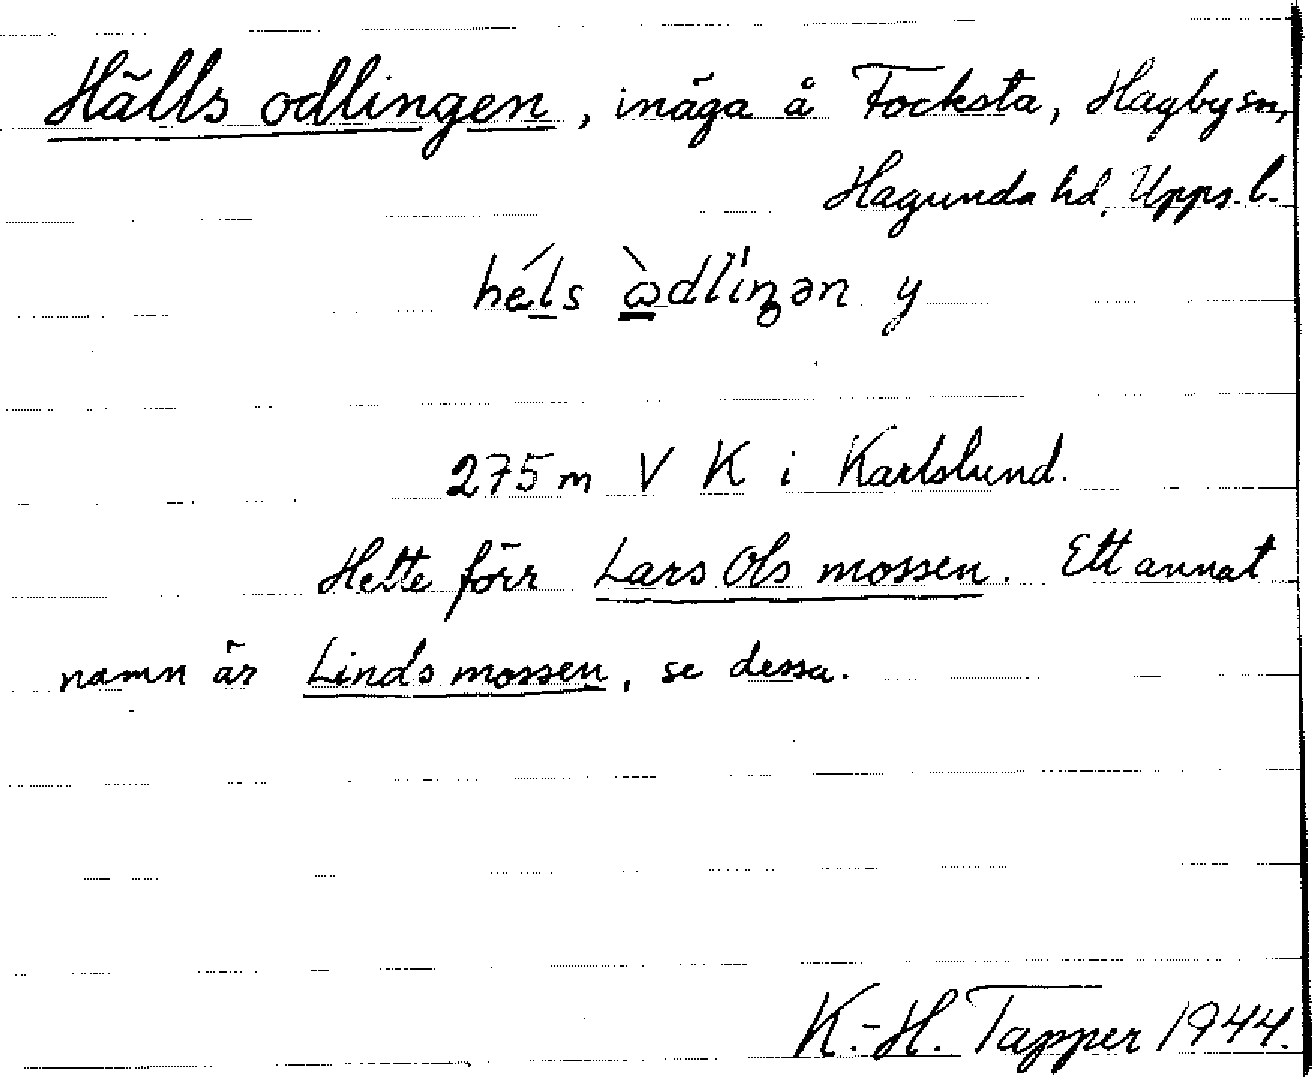 Hälls odlingen, inäga å Focksta, Hagby sn,
Hagunda hd, Upps. l.
héls òdliŋən y
275 m V K i Karlslund.
Hette förr Lars Ols mossen. Ett annat
namn är Linds mossen, se dessa.
K.-H. Tapper 1944.